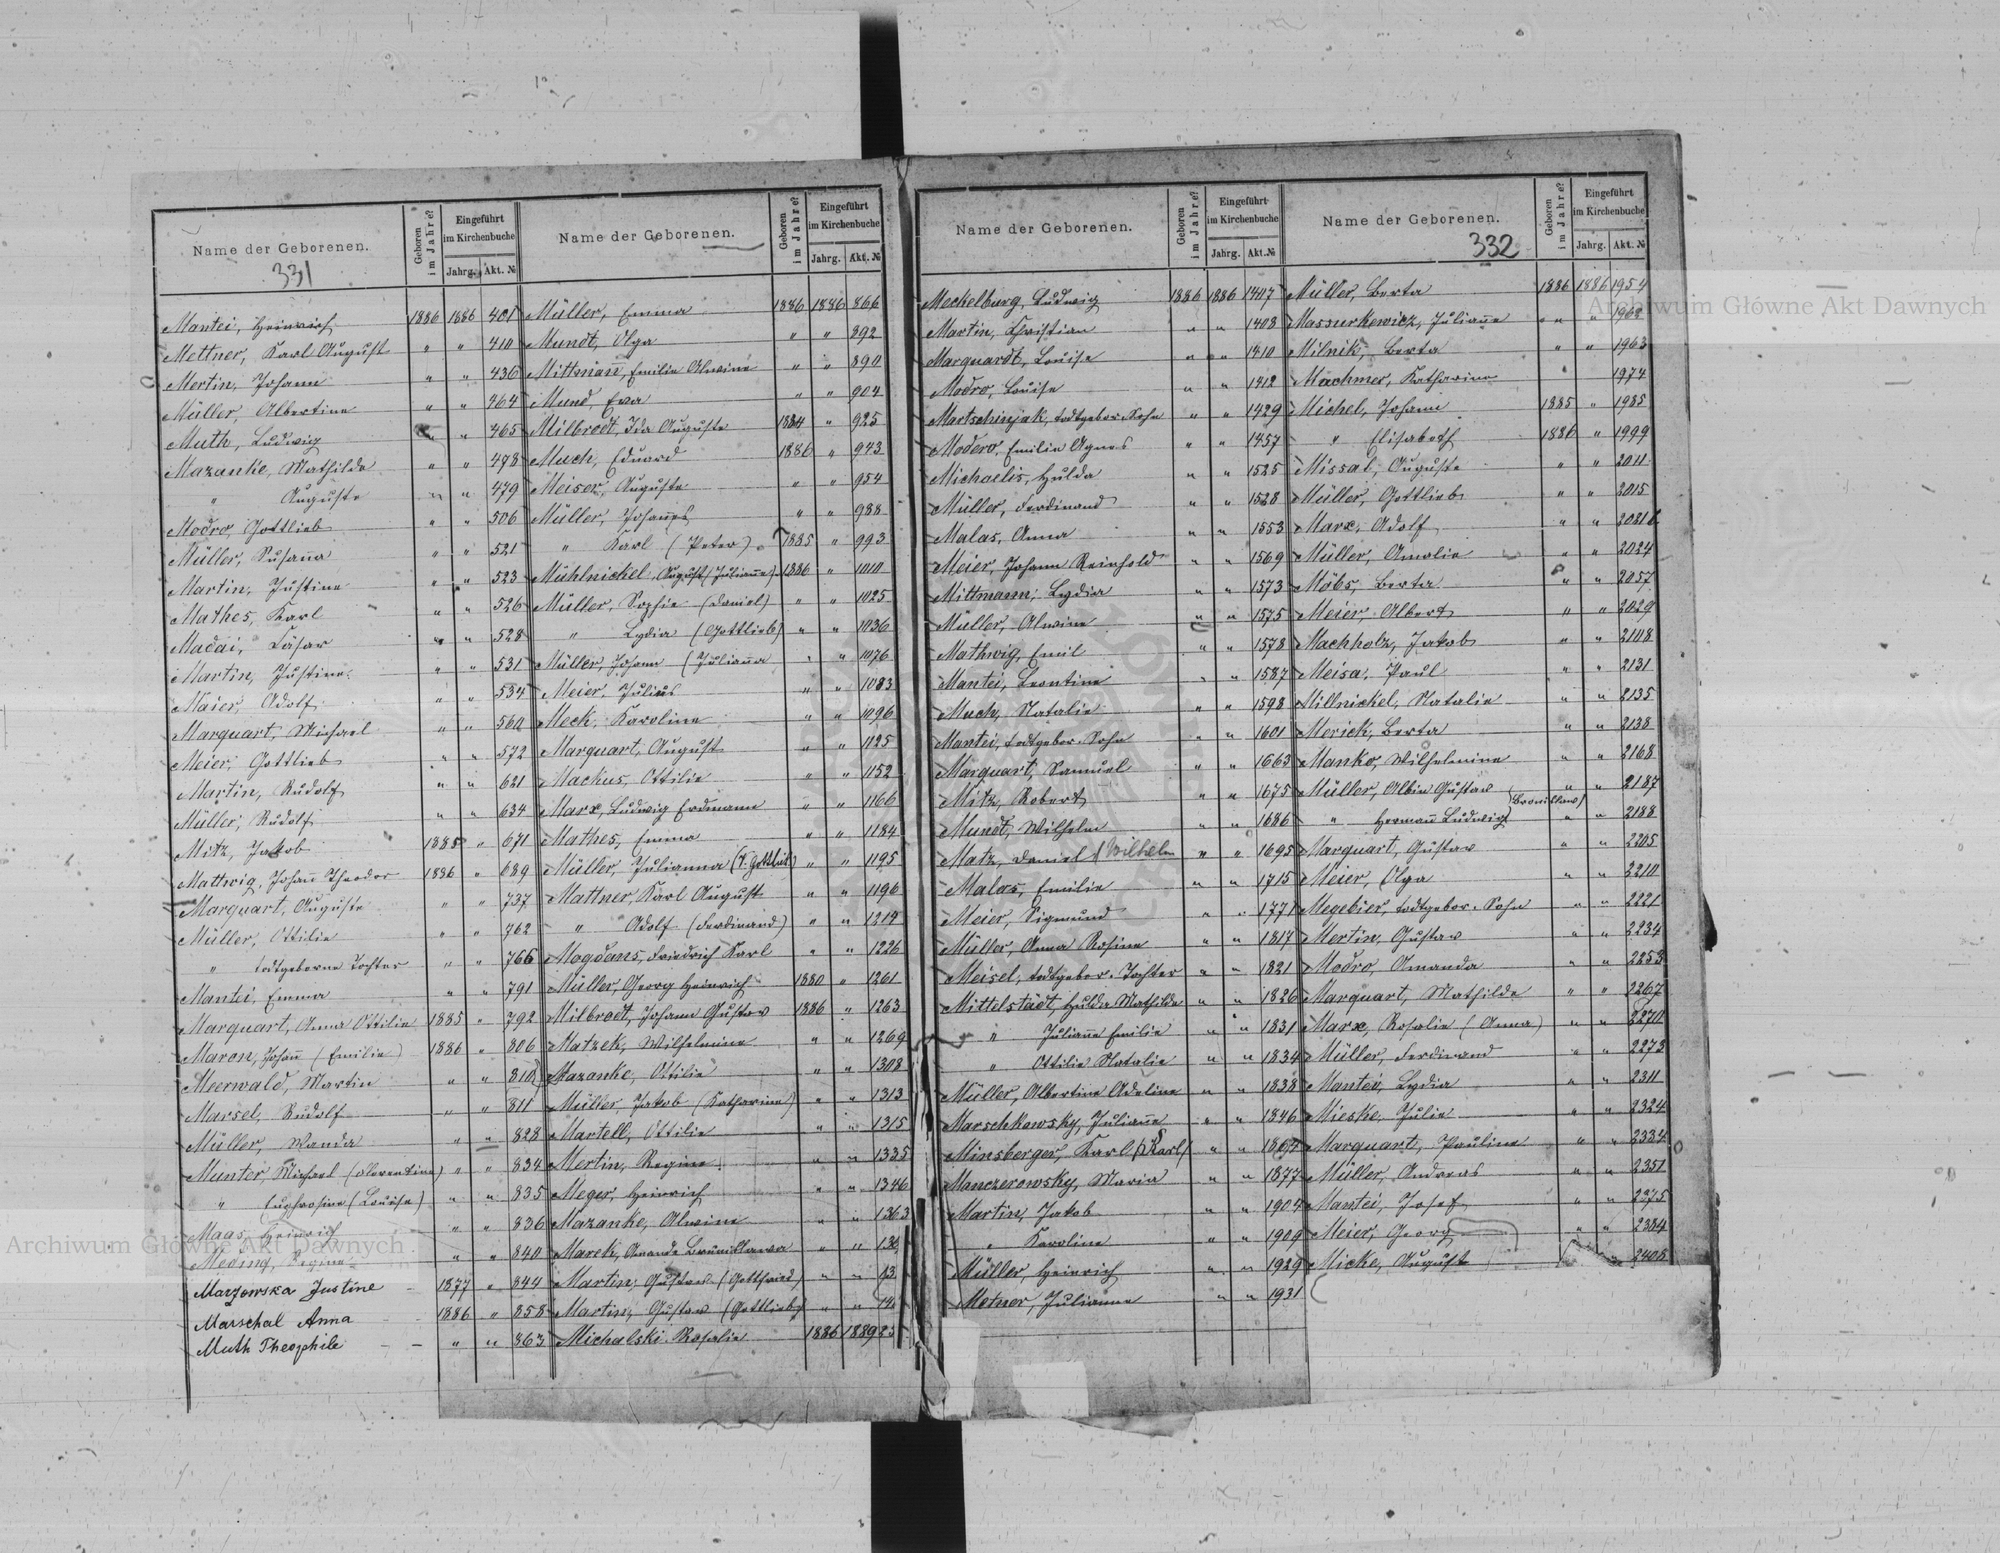 Name der Geborenen.
Geboren im Jahre?
Eingeführt im Kirchenbuche
Jahrg. Akt. №
331
Mantei, Heinrich 1886 1886 401
Mettner, Karl August " " 410
Mertin, Johann " " 436
Müller, Albertine " " 464
Muth, Ludwig " " 465
Mazanke, Mathilde " " 478
" Auguste " " 479
Modro, Gottlieb " " 506
Müller, Susanna " " 521
Martin, Justine " " 523
Mathes, Karl " " 526
Madai, " " 528
Martin, Justine " " 531
Maier, Adolf " " 534
Marquart, Michael " " 560
Meier, Gottlieb " " 572
Martin, Rudolf " " 621
Müller, Rudolf " " 634
Mitz, Jakob 1885 " 671
Mattwig, Johann Theodor 1886 " 689
Marquart, Auguste " " 737
Müller, Ottilie " " 762
" todtgeborne Tochter " " 766
Mantei, Emma " " 791
Marquart, Anna Ottilie 1885 " 792
Maron, Johann (Emilie) 1886 " 806
Meerwald, Martin " " 810
Marsel, Rudolf " " 811
Müller, Wanda " " 828
Munter, Michael (Florentine) " " 834
" Euphrosine (Louise) " " 835
Maas, Heinrich " " 836
Meding, " " 840
Marzowska Justine 1877 " 844
Marschal Anna 1886 " 858
Muth Theophile " " 863
Name der Geborenen.
Geboren im Jahre?
Eingeführt im Kirchenbuche
Jahrg. Akt. №
Müller, Emma 1886 1886 866
Mundt, Olga " " 892
Mittman, Emilie Alwine " " 890
Mund, Eva " " 904
Milbrodt, Ida Auguste 1884 " 925
Much, Eduard 1886 " 943
Meiser, Auguste " " 954
Müller, Johannes " " 988
" Karl (Peter) 1885 " 993
Mühlnickel, August (Julianne) 1886 " 1010
Müller, Sophie (Daniel) " " 1025
" Lydia (Gottlieb) " " 1036
Müller, Johann (Julianna " " 1076
Meier, Julius " " 1083
Meck, Karoline " " 1096
Marquart, August " " 1125
Mackus, Ottilie " " 1152
Marx, Ludwig Erdmann " " 1166
Mathes, Emma " " 1184
Müller, Julianna (T. Gottlieb) " " 1195
Mattner, Karl August " " 1196
" Adolf (Ferdinand) " " 1214
Magdans, Friedrich Karl " " 1226
Müller, Georg Heinrich 1880 " 1261
Milbrodt, Johann Gustav 1886 " 1263
Matzek, Wilhelmine " " 1269
Mazanke, Ottilie " " 1308
Müller, Jakob (Katharine) " " 1313
Martell, Ottilie " " 1315
Mertin, Regine " " 1335
Meger, Heinrich " " 1346
Mazanke, Alwine " " 1363
Marek, Amande Brunillawa " "
Martin, Gustav (Gottfried) " "
Martin, Gustav (Gottlieb) " "
Michalski Rosalie 1886 1889 23
Name der Geborenen.
Geboren im Jahre?
Eingeführt im Kirchenbuche
Jahrg. Akt. №
Meckelburg, Ludwig 1886 1886 1407
Martin, Christian " " 1408
Marquardt, Louise " " 1410
Modro, Louise " " 1412
Martschinjak, todtgebor. Sohn " " 1429
Modero, Emilie Agnes " " 1457
Michaelis, Hulda " " 1525
Müller, Ferdinand " " 1528
Malas, Anna " " 1553
Meier, Johann Reinhold " " 1569
Mittmann, Lydia " " 1573
Müller, Alwine " " 1575
Mathwig, Emil " " 1578
Mantei, Leontine " " 1587
Much, Natalie " " 1598
Mantei, todtgebor. Sohn " " 1601
Marquart, Samuel " " 1663
Mitz, Robert " " 1675
Mundt, Wilhelm " " 1686
Matz, Daniel (Wilhelm " " 1695
Malas, Emilie " " 1715
Meier, Sigmund " " 1771
Müller, Anna Rosine " " 1817
Meisel, todtgebor. Tochter " " 1821
Mittelstädt, Hulda Mathilde " " 1826
" Julianne Emilie " " 1831
" Ottilie Natalie " " 1834
Müller, Albertine Adeline " " 1838
Marschkowsky, Julianne " " 1846
Minsberger, Karl (Karl) " " 1867
Manczerowsky, Maria " " 1877
Martin, Jakob " " 1904
" Karoline " " 1909
Müller, Heinrich " " 1929
Metner, Julianne " " 1931
Name der Geborenen.
Geboren im Jahre?
Eingeführt im Kirchenbuche
Jahrg. Akt. №
332
Müller, Berta 1886 1886 1954
Massurkewicz, Julianne " " 1962
Milnik, Berta " " 1963
Machmer, Katharine 1974
Michel, Johann 1885 " 1985
" Elisabeth 1886 " 1999
Missal, Auguste " " 2011
Müller, Gottlieb " " 2015
Marx, Adolf " "
Müller, Amalie " " 2024
Möbs, Berta " " 2057
Meier, Albert " " 2029
Machholz, Jakob " " 2108
Meisa, Paul " " 2131
Millnickel, Natalie " " 2135
Merick, Berta " " 2138
Manko, Wilhelmine " " 2168
Müller, Albin Gustav " " 2187
" Hermann Ludwig (Bronislaw) " " 2188
Marquart, Gustav " " 2205
Meier, Olga " " 2210
Megebier, todtgebor. Sohn " " 2221
Mertin, Gustav " " 2234
Modro, Amanda " " 2253
Marquart, Mathilde " " 2267
Marx, Rosalie (Anna) " " 2270
Müller, Ferdinand " " 2273
Mantei, Lydia " " 2311
Mieske, Julie " " 2324
Marquart, Pauline " " 2334
Müller, Andreas " " 2351
Mantei, Josef " " 2375
Meier, Georg " " 2384
Micke, August " 2405
Archiwum Główne Akt Dawnych
Archiwum Główne Akt Dawnych